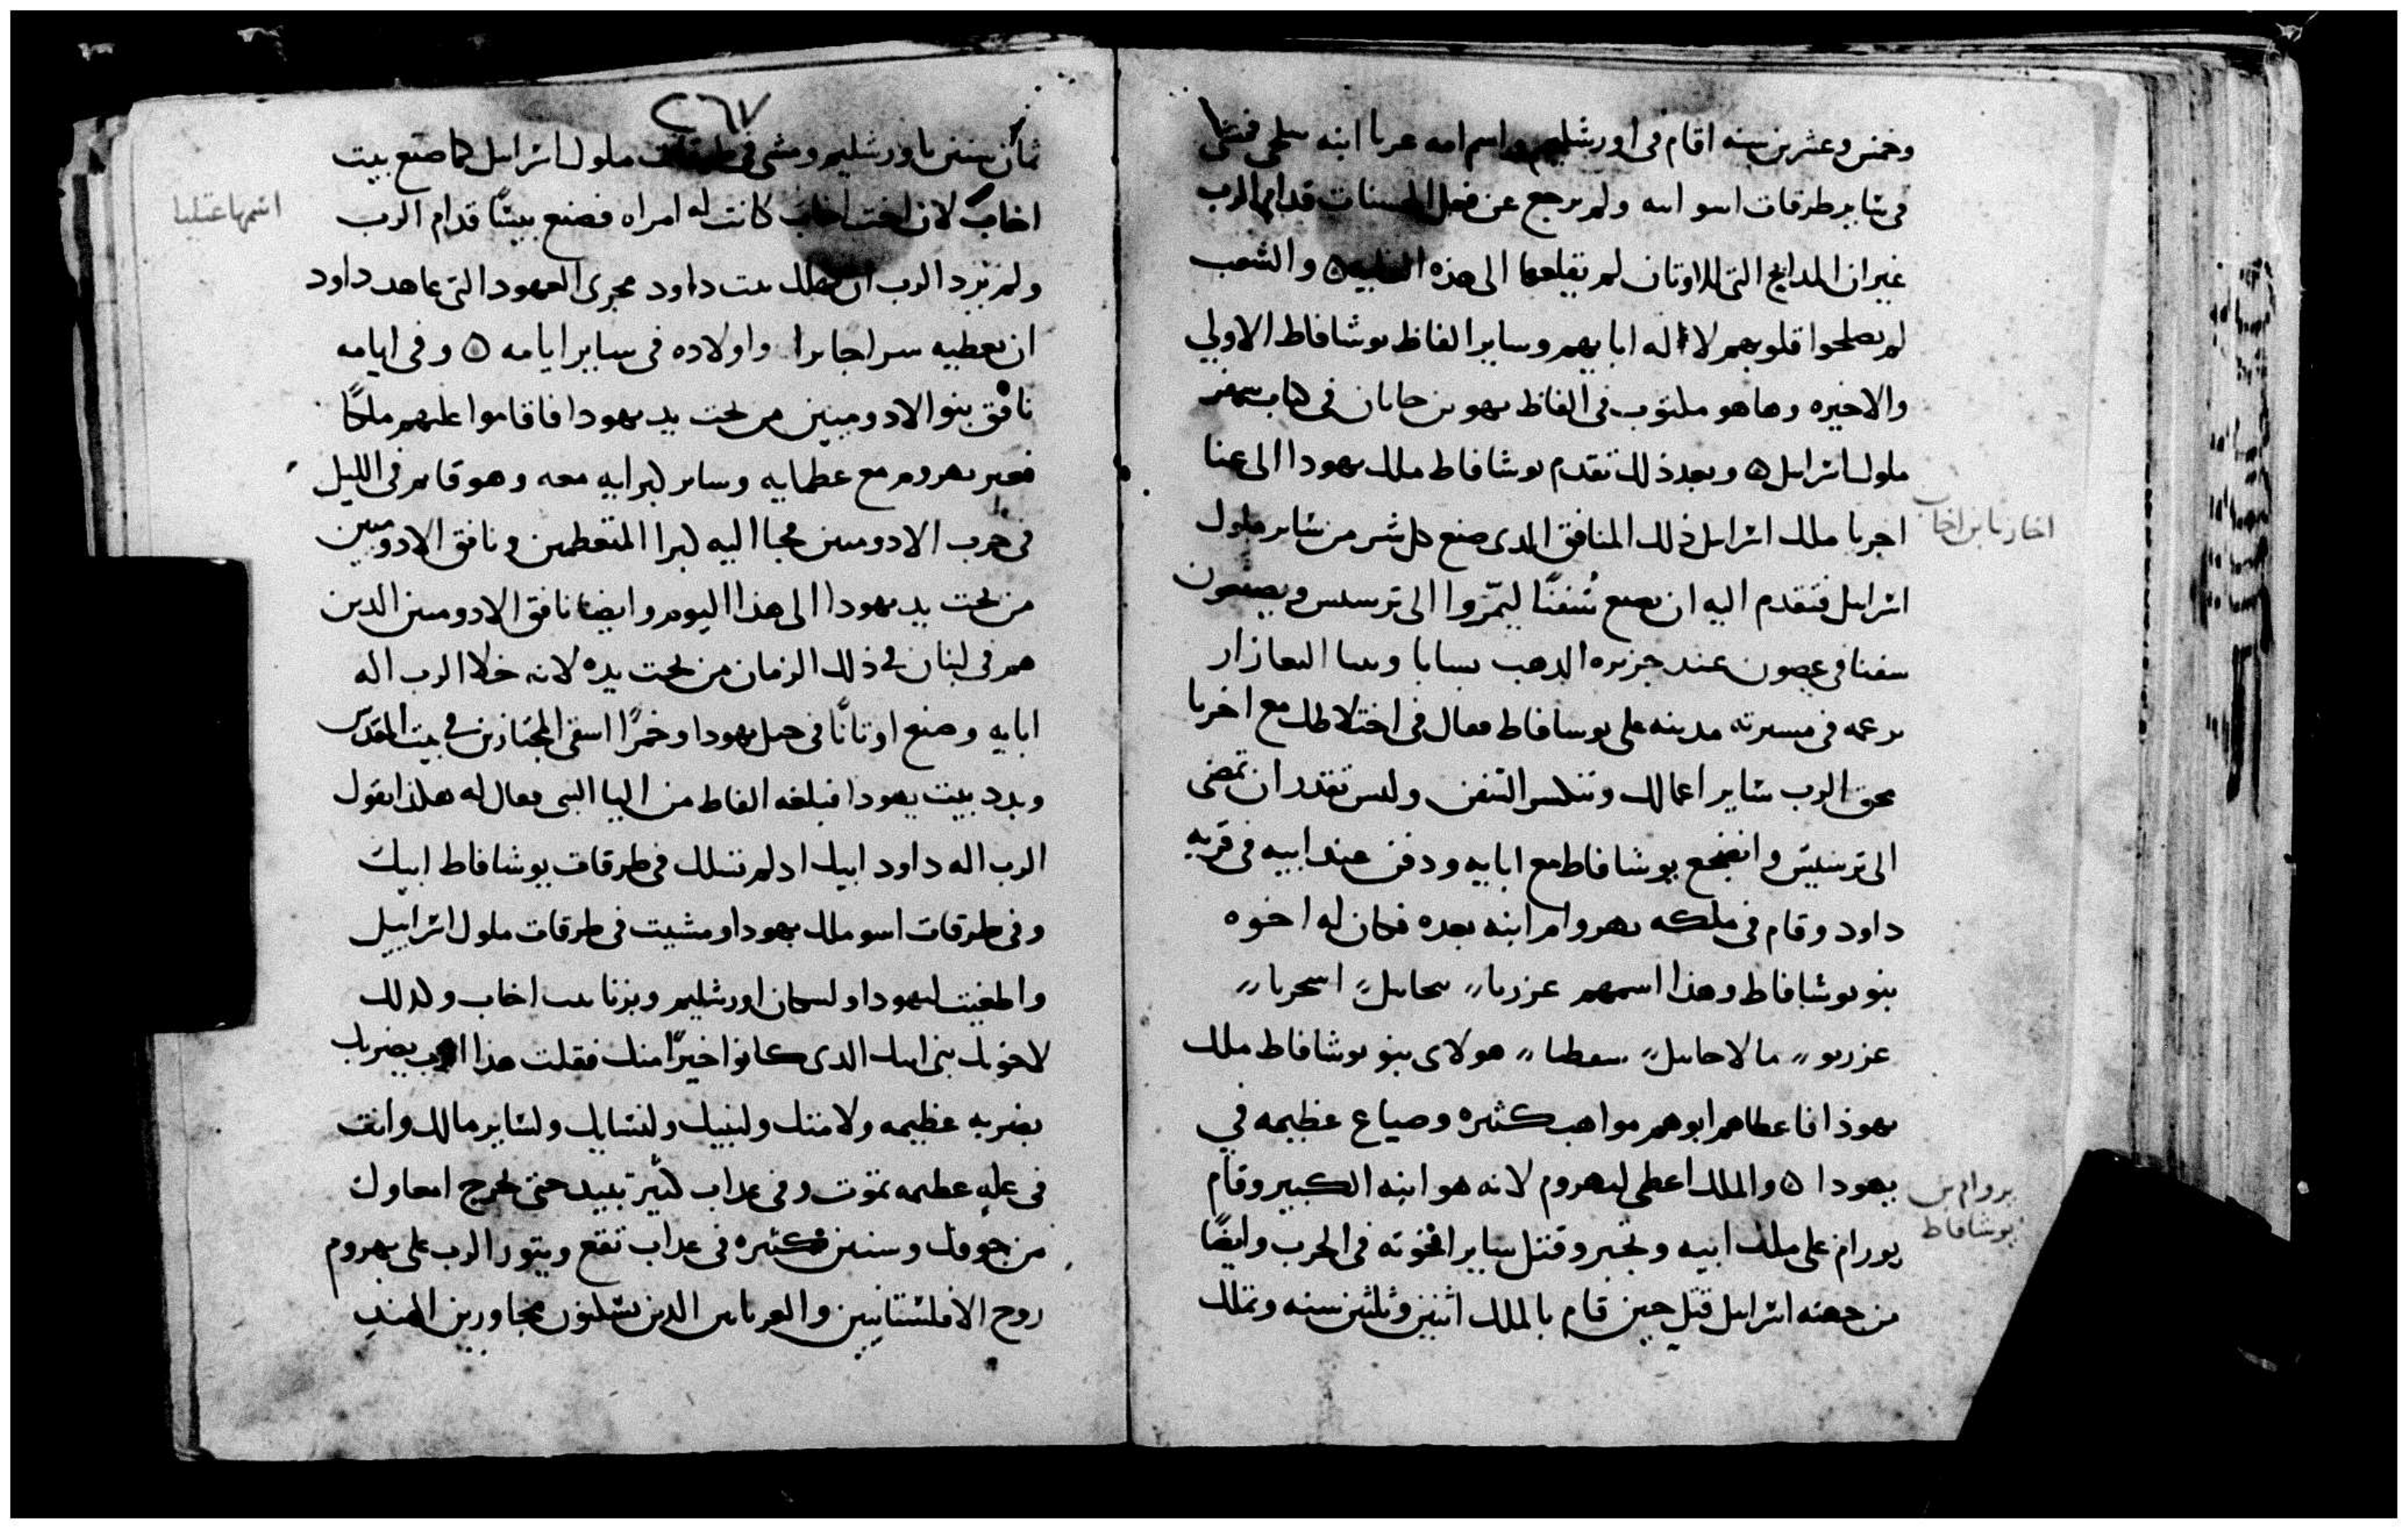 وخمس وعشرين سنه اقام فى اورشليم واسم امه عربا ابنه سلحى فمشى
فى ساير طرقات اسو ابيه ولم يرجع عن فعل الحسنات قدام الرب
غير ان المدابح التى للاوتان لم يقلعها الى هذه الغايه ه والشعب
لم يصلحوا قلوبهم لاله ابايهم وساير الفاظ يوشافاط الاولي
والاخيره وها هو مكتوب فى الفاظ يهو بن حانان فى كتاب سفر
ملوك اسرايل ه وبعد ذلك تقدم يوشافاط ملك يهودا الى عنا
اجريا ملك اسرايل ذلك المنافق الدى صنع كل شر من ساير ملوك
اسرايل فتقدم اليه ان يصنع سُفنًا ليمرّوا الى ترسيس ويصنعون
سفنا فى عصون عند جزيره الدهب بسابا وبنيا اليعازار
برعمه فى مسيرته مدينه على يوسافاط فقال فى اختلاطك مع اخريا
محق الرب ساير اعمالك وتنكسر السفن وليس تقدر ان تمضى
الى ترسيس وانضجع يوشافاط مع ابايه ودفن عند ابيه فى قريه
داود وقام فى ملكه يهروام ابنه بعده فكان له اخوه
بنو يوشافاط وهذا اسمهم عزريا،، يحاييل،، اسحريا،،
عزريو،، مالاحاييل،، سفطيا،، هولاى بنو يوشافاط ملك
يهوذا فاعطاهم ابوهم مواهب كثيره وضياع عظيمه في
يهودا ه والملك اعطى ليهروم لانه هو ابنه الكبير وقام
يورام على ملك ابيه وتجبر وقتل ساير اخوته فى الحرب وايضًا
من جهته اسرايل قتل حين قام بالملك اثنين وثلثين سنه وتملك
اخاريا بن اخاب
يروام بن
يوشافاط
٢٦٧
ثمان سنين باورشليم ومشى فى طرقات ملوك اسرايل كما صنع بيت
اخاب لان اخت اخاب كانت له امراه فصنع بيسًا قدام الرب
ولم يرد الرب ان يهلك بيت داود مجرى العهود التى عاهد داود
ان يعطيه سراجا برا واولاده فى ساير ايامه ه وفى ايامه
نافق بنو الادوميين من تحت يد يهودا فاقاموا عليهم ملكًا
فعبر يهروم مع عظمايه وساير كبرا ابيه معه وهو قايم فى الليل
فى حرب الادوميين فجا اليه كبرا المتعظمين ونافق الادوميين
من تحت يد يهودا الى هذا اليوم وايضا نافق الادوميين الدين
هم فى لبنان في ذلك الزمان من تحت يده لانه خلا الرب اله
ابايه وصنع اوتانًا فى جبل يهودا وخمرًا اسقى المجتازين في بيت المقدس
وبدد بيت يهودا فبلغه الفاظ من اليا النبى فقال له هكذا يقول
الرب اله داود ابيك اد لم تسلك فى طرقات يوشافاط ابيك
وفى طرقات اسو ملك يهودا ومشيت فى طرقات ملوك اسراييل
واطغيت ليهودا ولسكان اورشليم وبزنا بيت اخاب وكذلك
لاخوتك بنى ابيك الدى كانوا خيرًا منك فقلت هذا الرب يضربك
بضربه عظيمه ولامتك ولبنيك ولنسايك ولساير مالك وانت
فى عله عظيمه تموت وفى عداب كثير تبيد حتى تخرج امعاوك
من جوفك وسنين كثيره فى عداب تقع ويتور الرب على يهروم
روح الافلستانيين والعرباين الدين يسكنون مجاورين الهند
اسمها عتليا